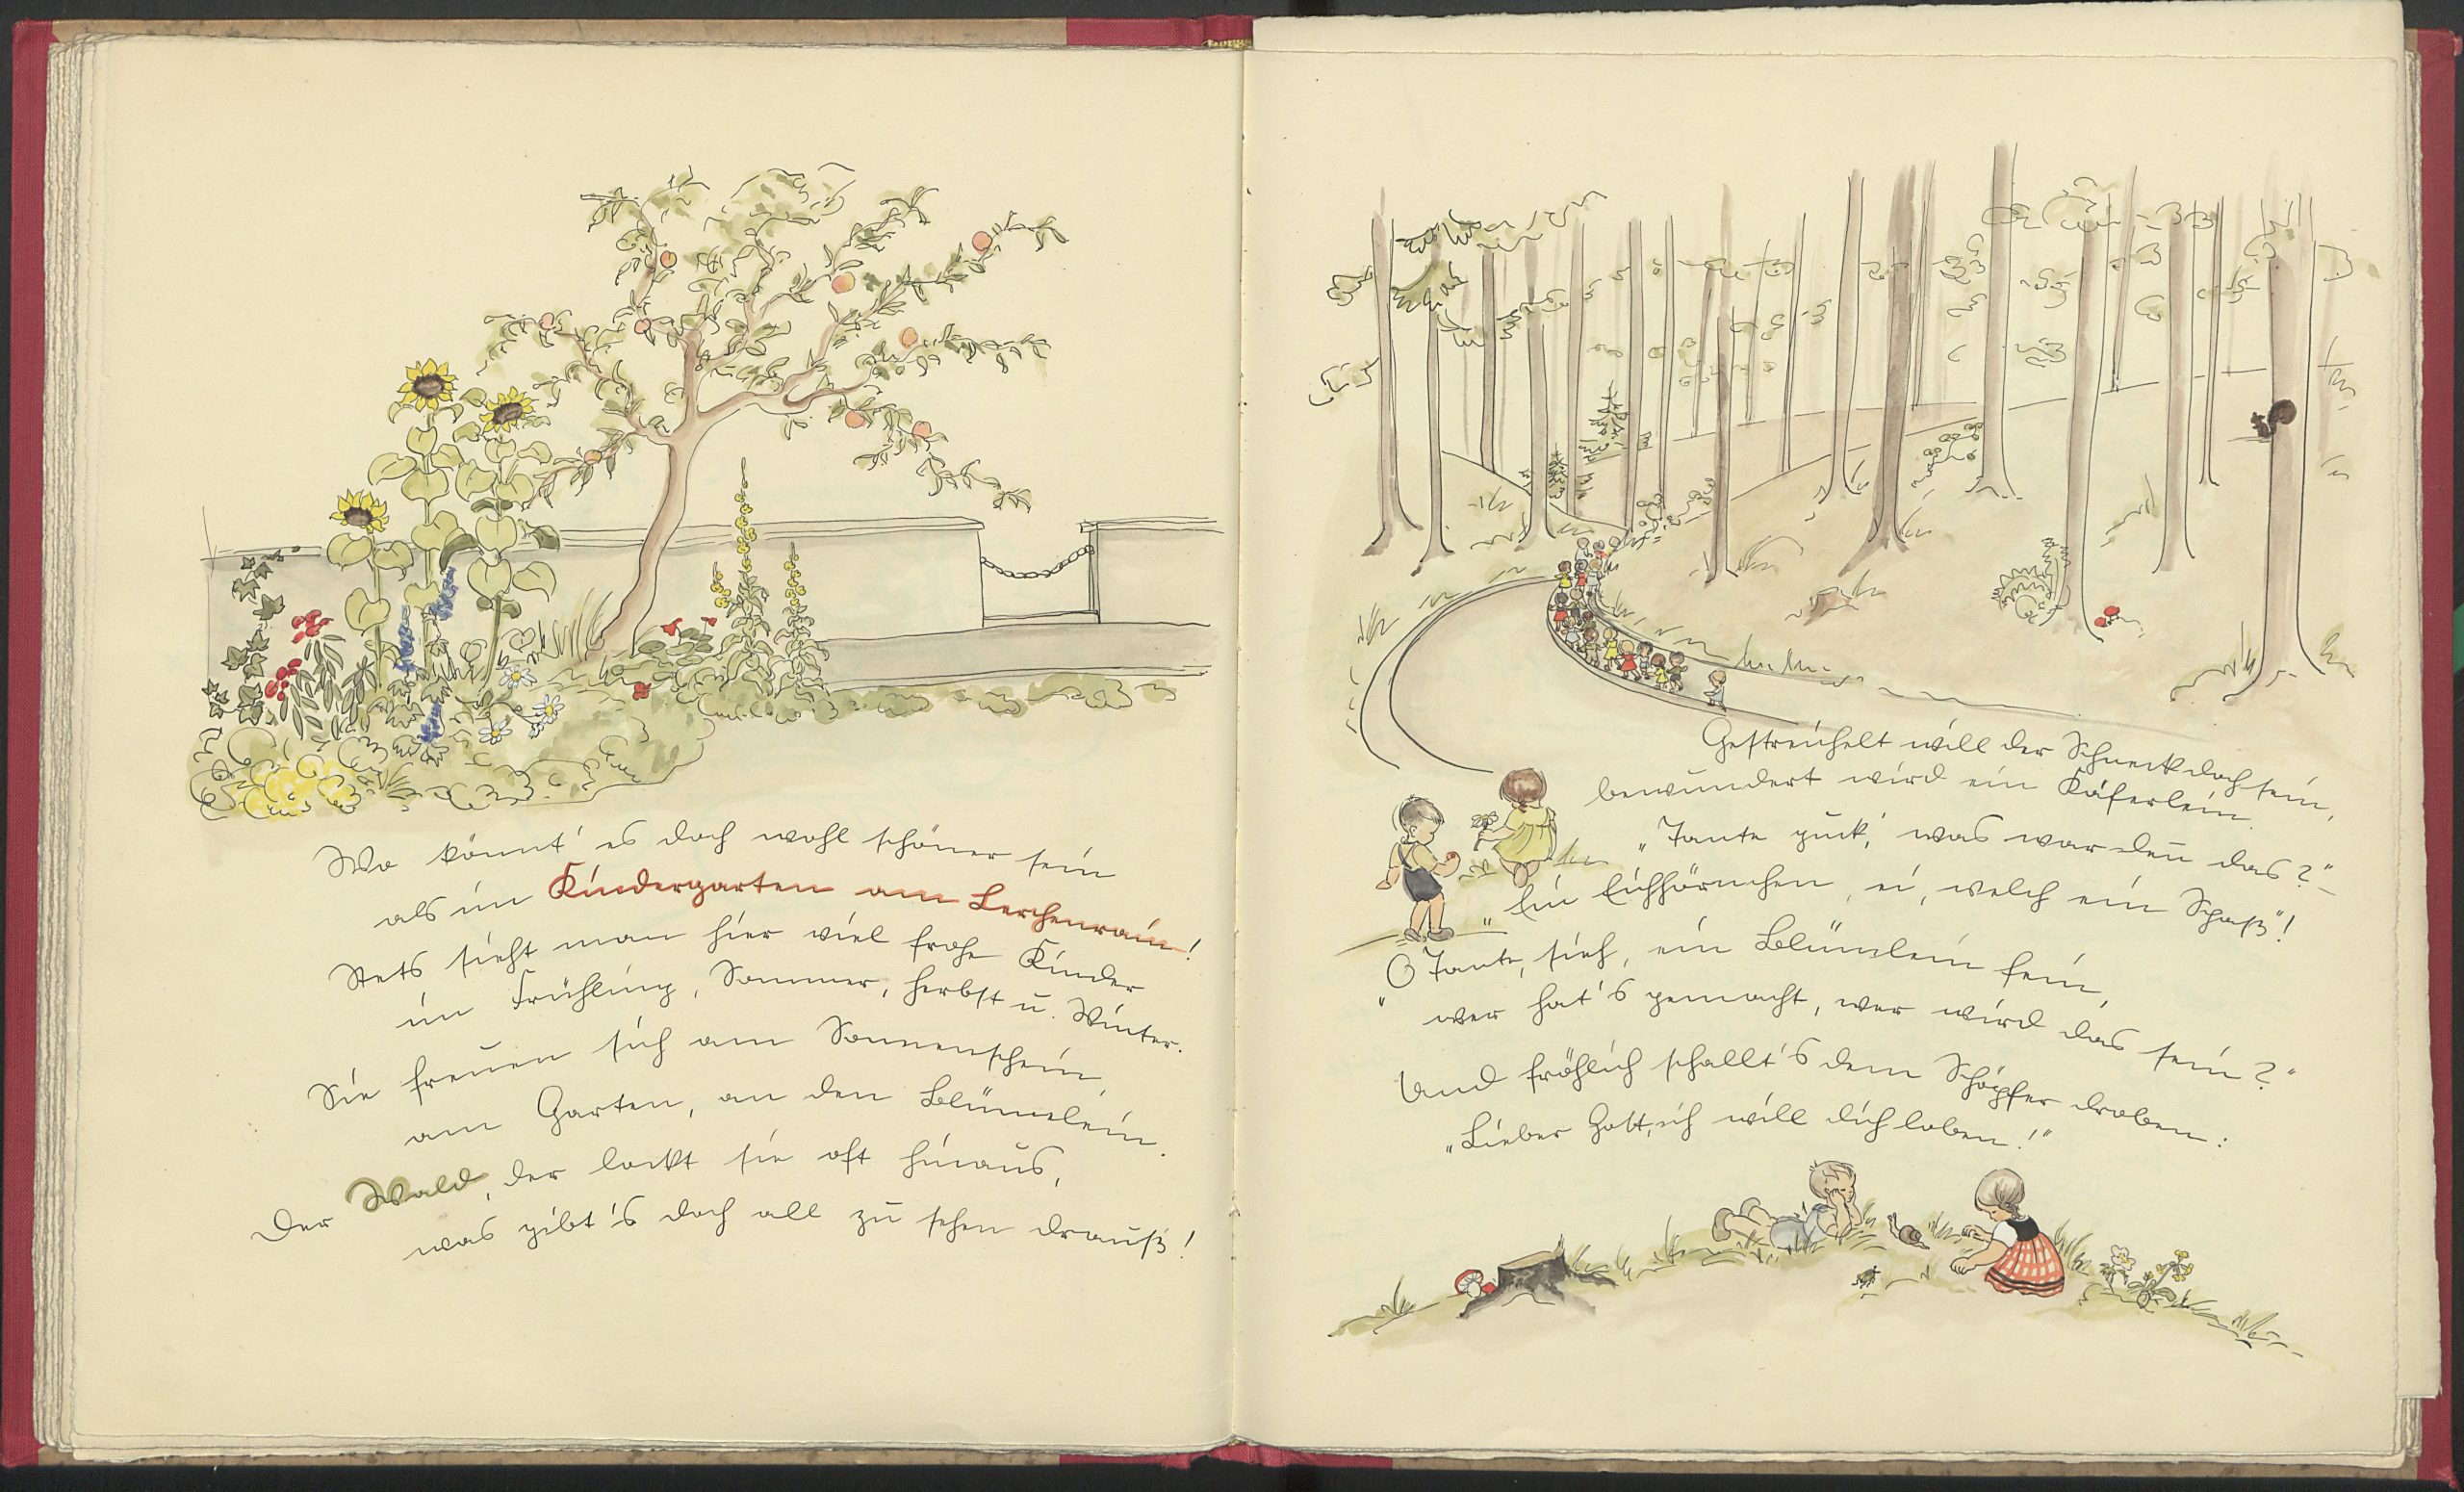 Wo könnt' es doch wohl schöner sein
als im Kindergarten am Lerchenrain!
Stets sieht man hier viel frohe Kinder
im Frühling, Sommer, Herbst u. Winter.
Sie freuen sich am Sonnenschein,
am Garten, an den Blümelein.
Der Wald, der lockt sie oft hinaus,
was gibt's doch all zu sehen drauß!
Gestreichelt will der Schneck doch sein,
bewundert wird ein Käferlein.
„Tante guck', was war deñ das?" –
„Ein Eichhörnchen, ei, welch ein Spaß"!
„O Tante, sieh, ein Blümlein fein,
wer hat's gemacht, wer wird das sein?"
Und fröhlich schallt's dem Schöpfer droben:
„Lieber Gott, ich will dich loben!"